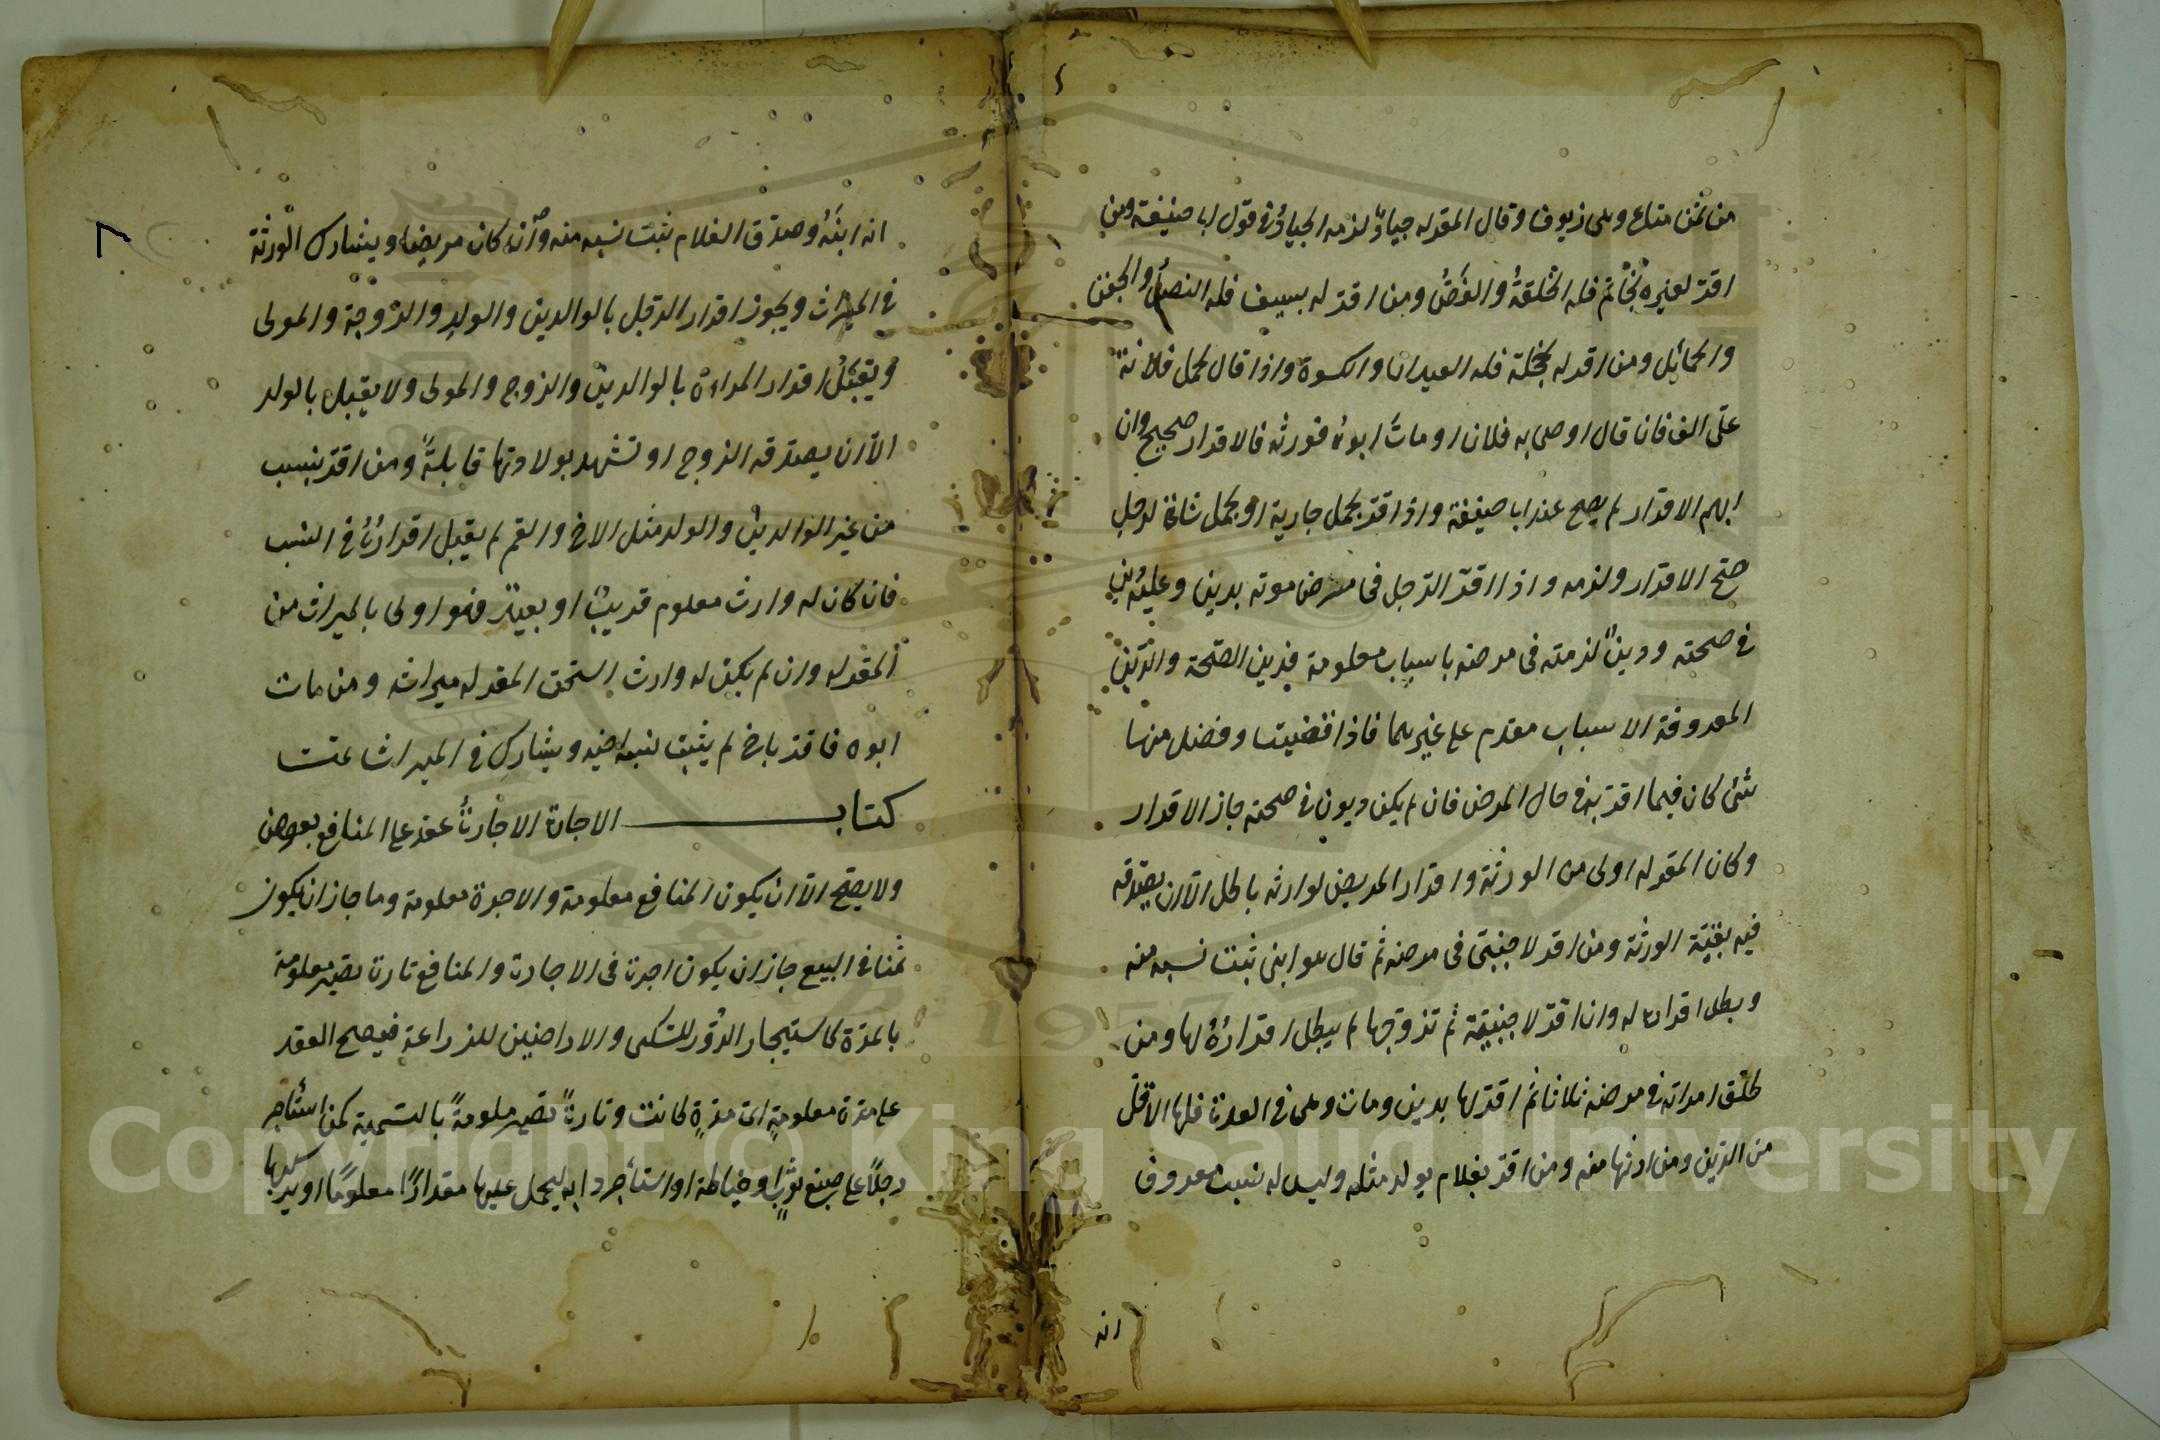 من ثمن متاع وهى زيوف وقال المقر له جياد لزمه الجياد فى قول ابا حنيفة ومن
اقر لغيره بخاتم فله الحلقة والفص ومن اقر له بسيف فله النصل والجفن
والحمائل ومن اقر له بحجلة فله العيدان والكسوة واذا قال لحمل فلانة
على الف فان قال اوصى به فلان او مات ابوه فورثه فالاقرار صحيح وان
ابهم الاقرار لم يصح عند ابا حنيفة واذا اقر بحمل جارية او بحمل شاة لرجل
صح الاقرار ولزمه واذا اقر الرجل فى مرض موته بدين وعليه دين
فى صحته ودين لزمته فى مرضه باسباب معلومة فدين الصحة والدين
المعروفة الاسباب مقدم على غيرهما فاذا قضيت وفضل منها
شئ كان فيما اقر به فى حال المرض فان لم يكن ديون فى صحته جاز الاقرار
وكان المقر له اولى من الورثة واقرار المريض لوارثه باطل الا ان يصدقه
فيه بقية الورثة ومن اقر لاجنبى فى مرضه ثم قال هو ابنى ثبت نسبه منه
وبطل اقراره له وان اقر لاجنبية ثم تزوجها لم يبطل اقراره لها ومن
طلق امراته فى مرضه ثلاثا ثم اقر لها بدين ومات وهى فى العدة فلها الاقل
من الدين ومن ارثها منه ومن اقر بغلام يولد مثله وليس له نسب معروف
انه
انه ابنه وصدق الغلام ثبت نسبه منه وان كان مريضا ويشارك الورثة
فى الميراث ويجوز اقرار الرجل بالوالدين والولد والزوجة والمولى
ويقبل اقرار المراة بالوالدين والزوج والمولى ولا يقبل بالولد
الا ان يصدقه الزوج او تشهد بولادتها قابلة ومن اقر بنسب
من غير الوالدين والولد مثل الاخ والعم لم يقبل اقراره فى النسب
فان كان له وارث معلوم قريب او بعيد فهو اولى بالميراث من
المقر له وان لم يكن له وارث استحق المقر له ميراثه ومن مات
ابوه فاقر باخ لم يثبت نسب اخيه ويشارك فى الميراث
كتاب الاجارة الاجارة عقد على المنافع بعوض
ولا يصح الا ان يكون المنافع معلومة والاجرة معلومة وما جاز ان يكون
ثمنا فى البيع جاز ان يكون اجرة فى الاجارة والمنافع تارة تصير معلومة
بالمدة كاستيجار الدور للسكنى والاراضين للزراعة فيصح العقد
على مدة معلومة اى مدة كانت وتارة تصير معلومة بالتسمية كمن استأجر
رجلا على صبغ ثوب او خياطة او استأجر دابه ليحمل عليها مقدارا معلوما او يركبها